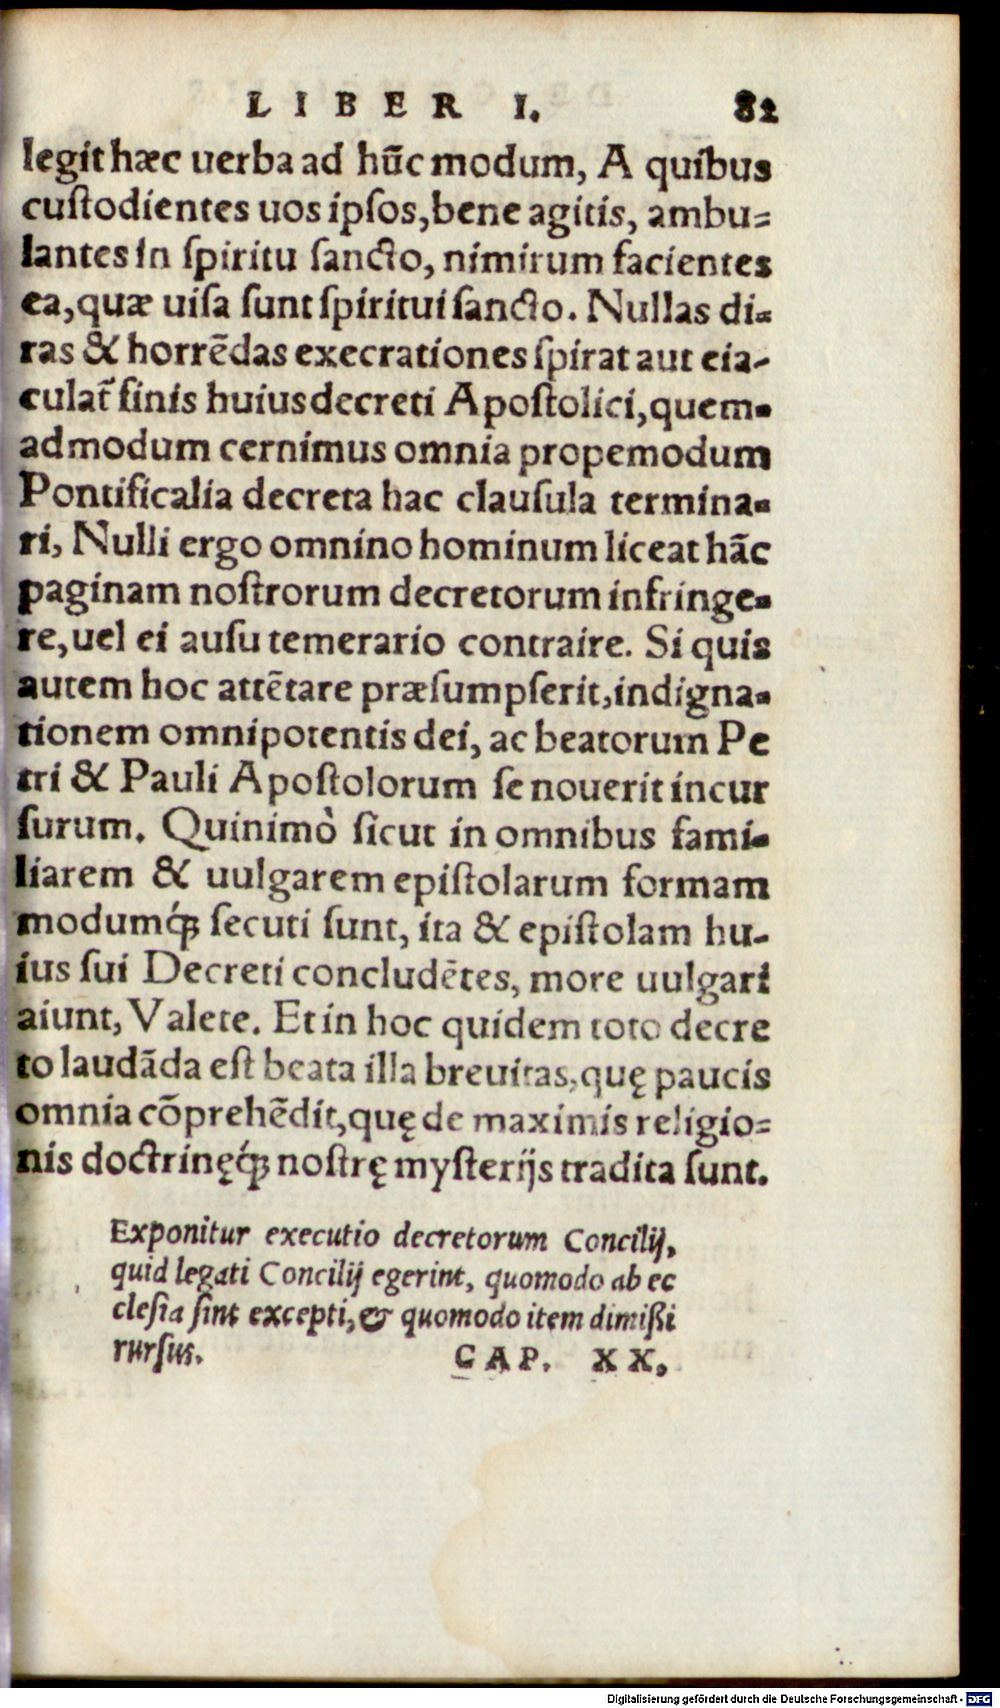 LIBER I. 82
legit hæc uerba ad hūc modum, A quibus
cuſtodientes uos ipſos, bene agitis, ambu=
lantes in ſpiritu ſancto, nimirum facientes
ea, quæ uiſa ſunt ſpiritui ſancto. Nullas di-
ras & horrēdas execrationes ſpirat aut eia-
culat᷑ finis huius decreti Apoſtolici, quem-
admodum cernimus omnia propemodum
Pontificalia decreta hac clauſula termina-
ri, Nulli ergo omnino hominum liceat hāc
paginam noſtrorum decretorum infringe-
re, uel ei auſu temerario contraire. Si quis
autem hoc attētare præſumpſerit, indigna-
tionem omnipotentis dei, ac beatorum Pe
tri & Pauli Apoſtolorum ſe nouerit incur
ſurum. Quinimò ſicut in omnibus fami-
liarem & uulgarem epiſtolarum formam
modumq́ꝫ ſecuti ſunt, ita & epiſtolam hu-
ius ſui Decreti concludētes, more uulgari
aiunt, Valete. Et in hoc quidem toto decre
to laudāda eſt beata illa breuitas, quę paucis
omnia cōprehēdit, quę de maximis religio=
nis doctrinęq́ꝫ noſtrę myſterijs tradita ſunt.
Exponitur executio decretorum Concilij,
quid legati Concilij egerint, quomodo ab ec
cleſia ſint excepti, & quomodo item dimißi
rurſus. CAP. XX,
Digitalisierung gefördert durch die Deutsche Forschungsgemeinschaft - DFG